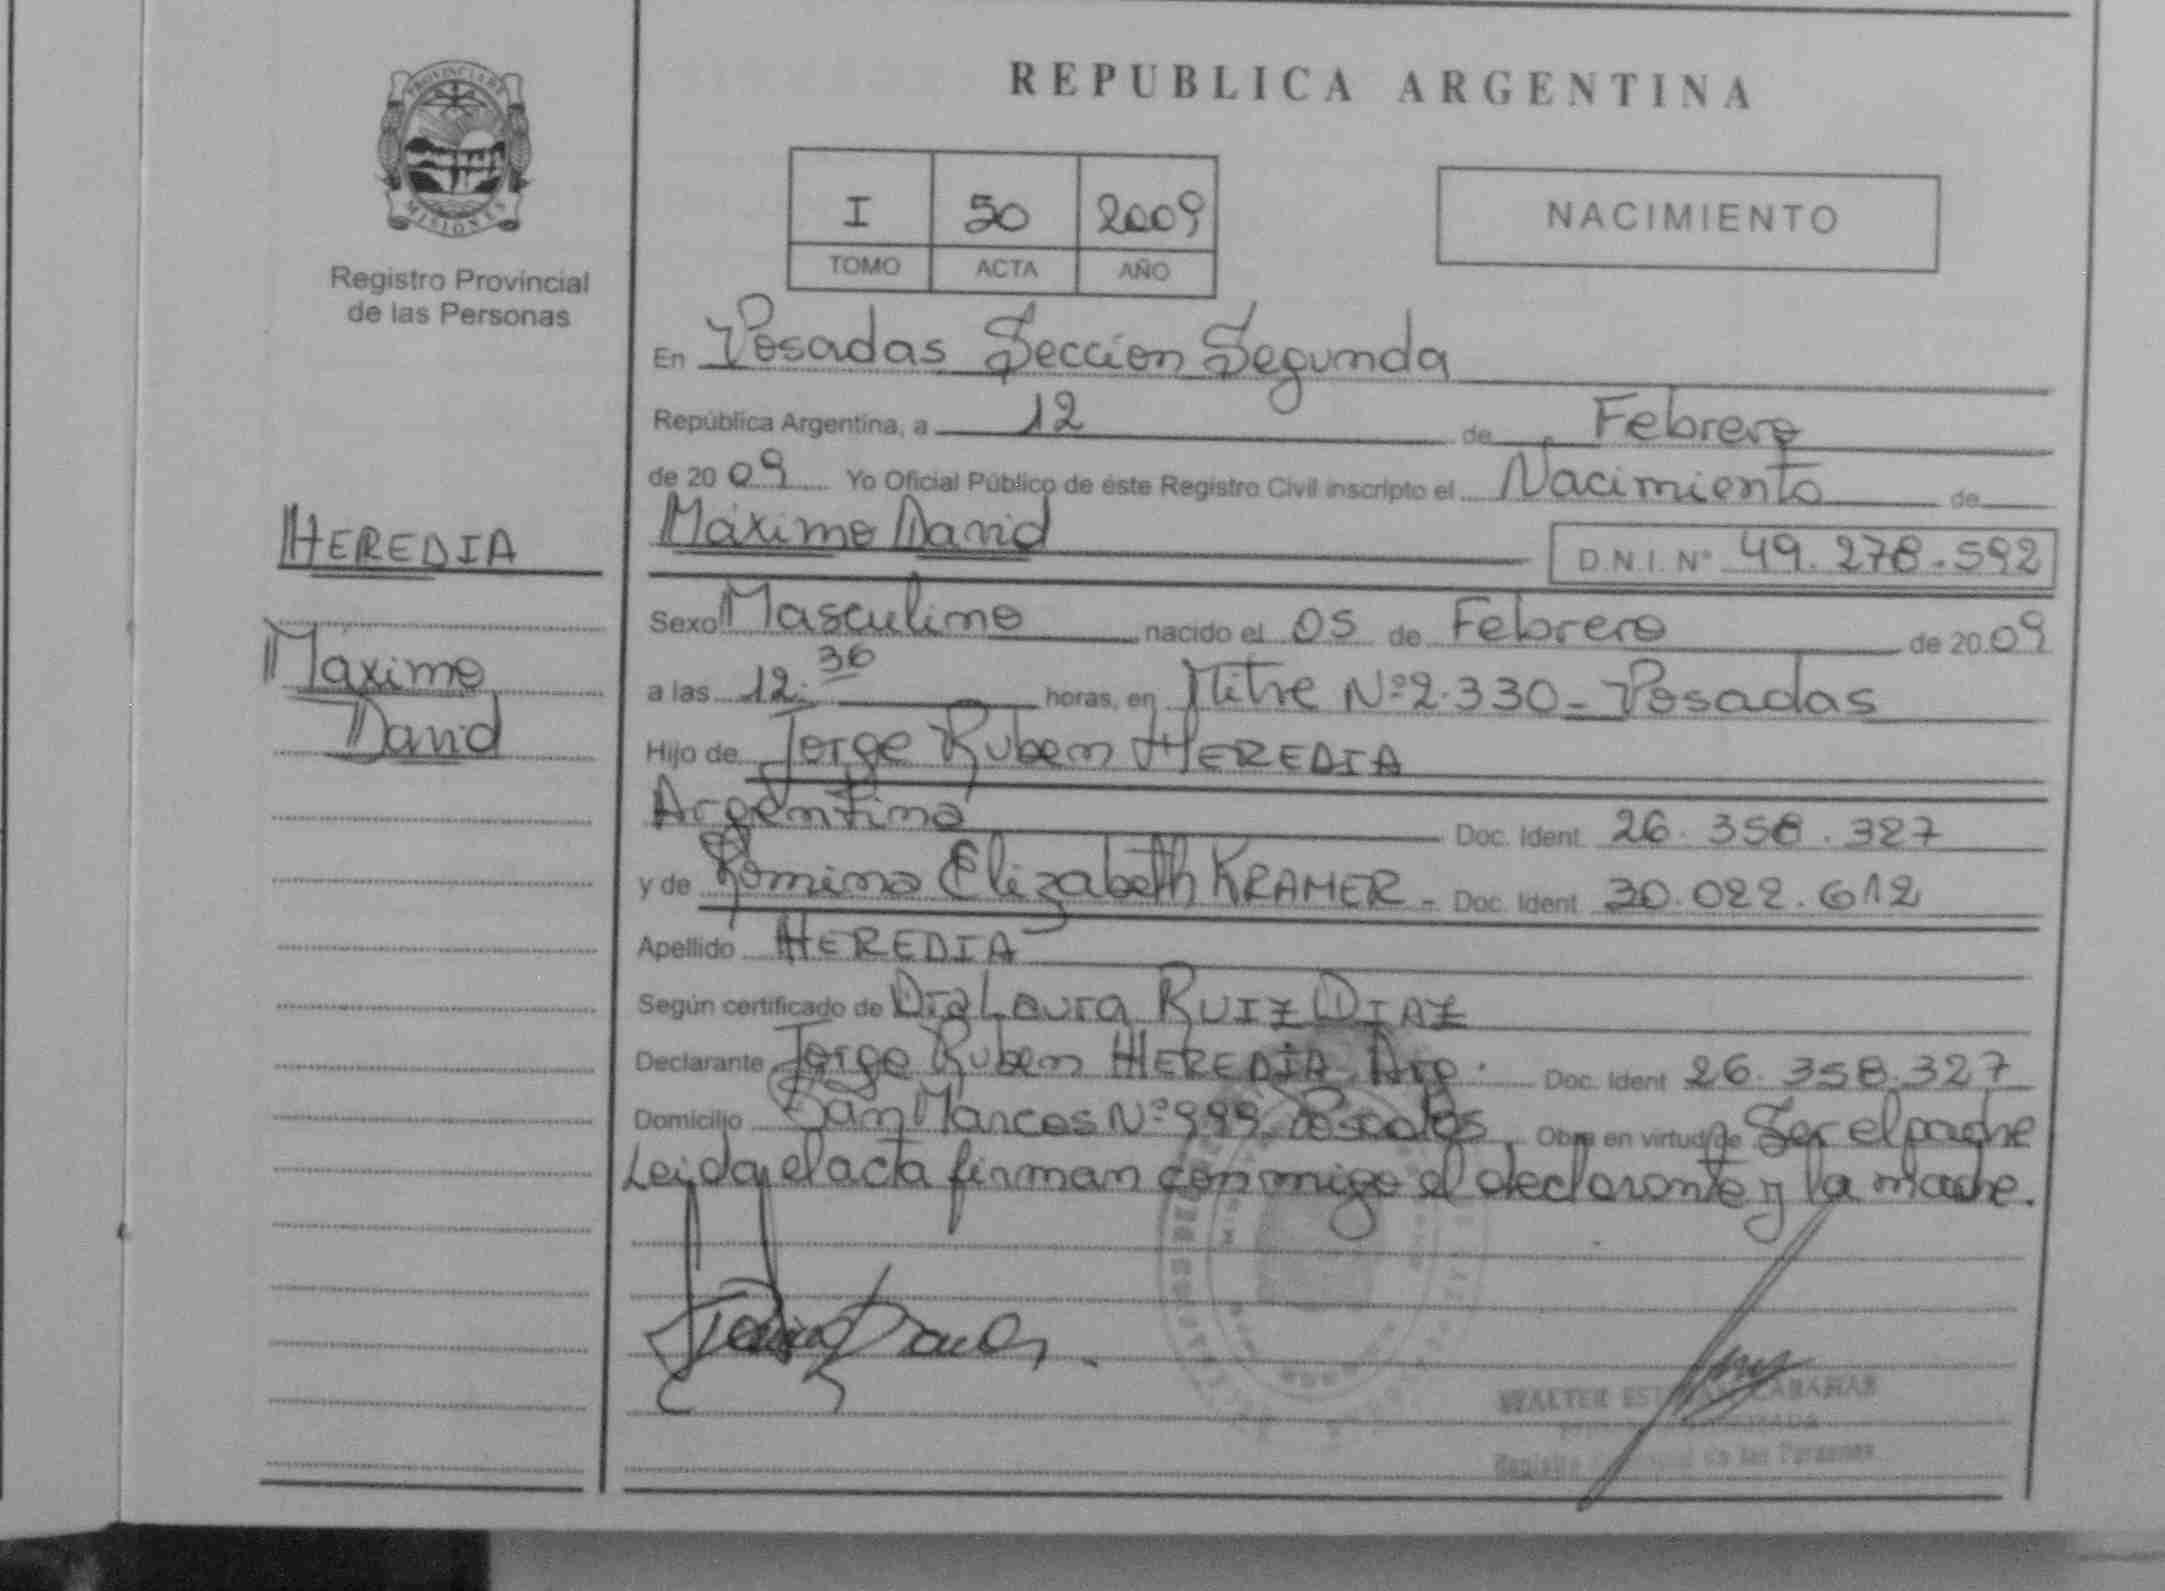 PROVINCIA DE
MISIONES
Registro Provincial
de las Personas
HEREDIA
Máximo
David
REPUBLICA ARGENTINA
I 50 2009
TOMO ACTA AÑO
NACIMIENTO
En Posadas Sección Segunda
República Argentina, a 12 de Febrero
de 20 09 Yo Oficial Público de éste Registro Civil inscripto el Nacimiento de
Máximo David D.N.I. Nº 49.278.592
Sexo Masculino nacido el 05 de Febrero de 20 09
a las 12:36 horas, en Mitre Nº 2.330 - Posadas
Hijo de Jorge Ruben HEREDIA
Argentino Doc. Ident. 26.358.327
y de Romina Elizabeth KRAMER - Doc. Ident. 30.022.612
Apellido HEREDIA
Según certificado de Dra Laura RUIZ DIAZ
Declarante Jorge Ruben HEREDIA, Arg. Doc. Ident 26.358.327
Domicilio San Marcos Nº 999. Posadas. Obra en virtud de Ser el padre
Leida el acta firman conmigo el declarante y la madre.
WALTER
Registro de las Personas